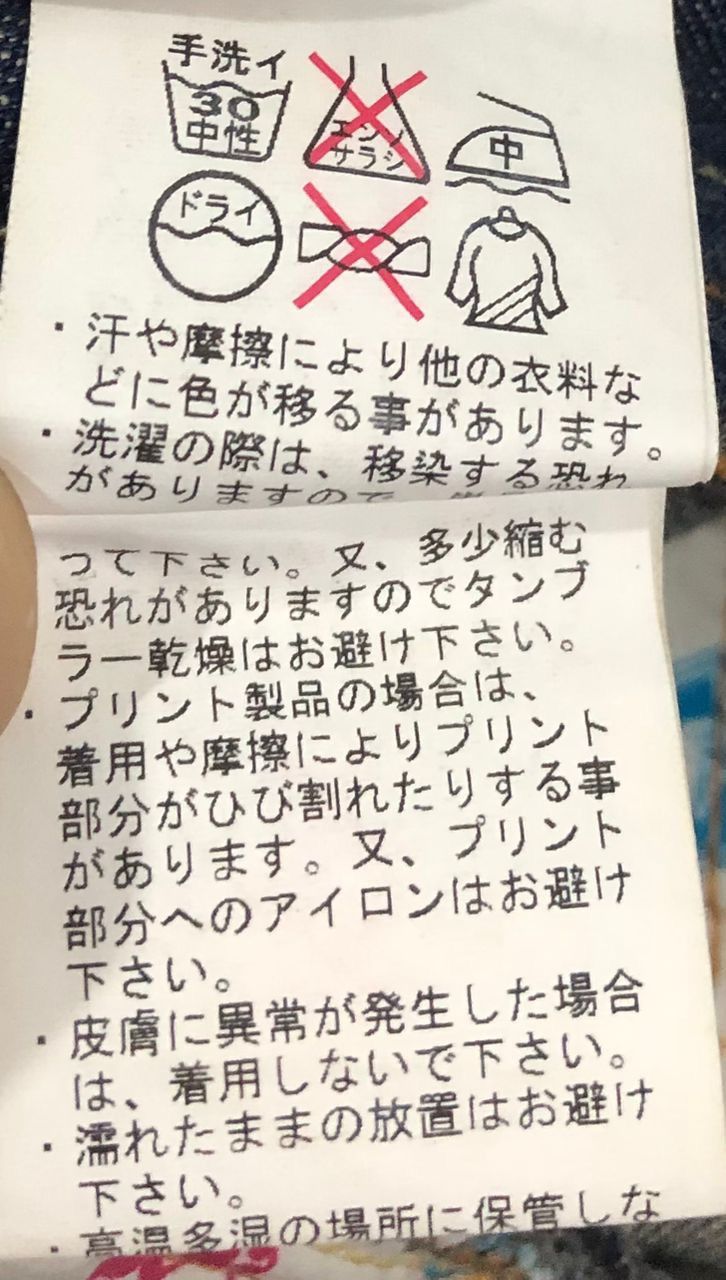 手洗イ
30
中性
エンソ
サラシ
中
ドライ
・汗や摩擦により他の衣料な
どに色が移る事があります。
・洗濯の際は、移染する恐れ
がありますので、
って下さい。又、多少縮む
恐れがありますのでタンブ
ラー乾燥はお避け下さい。
・プリント製品の場合は、
着用や摩擦によりプリント
部分がひび割れたりする事
があります。又、プリント
部分へのアイロンはお避け
下さい。
・皮膚に異常が発生した場合
は、着用しないで下さい。
・濡れたままの放置はお避け
下さい。
・高温多湿の場所に保管しな